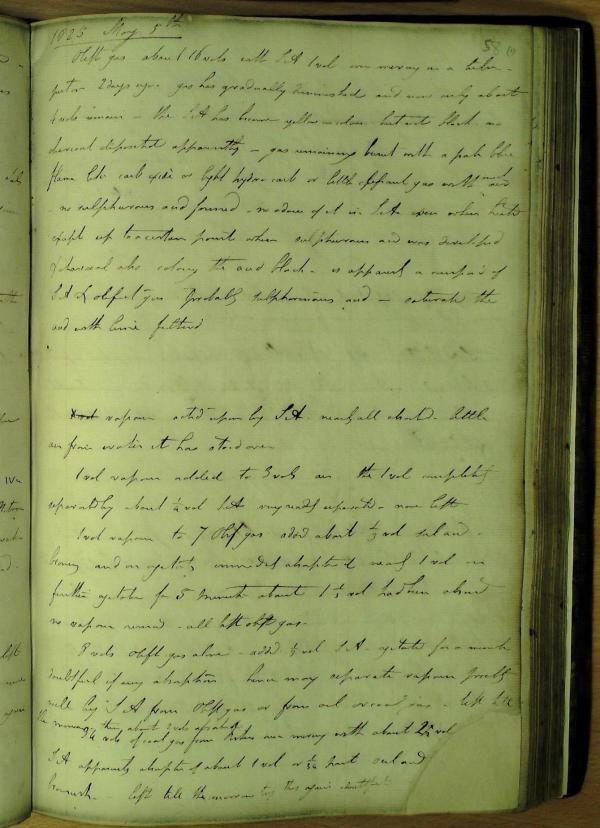 1825 May 5th
58
Olefit gas about 16 vols with S.A 1 vol over mercury in a tube
2 days ago gas has gradually diminished and now only about
4 vols remain - the S.A has become yellow in colour but not black - no
charcoal deposited apparently - gas remaining burnt with a pale blue
flame like carb oxide or light hydro carb or little olefiant gas with
no sulphurous acid formed - no odour of it in S.A even when heated
except up to a certain point when sulphurous acid was developed
& charcoal also colouring the acid black - is apparently a compd of
S.A & olefit gas Probably sulphovinous acid - saturate the
acid with filtered
vapour acted upon by S.A. nearly all absorbed. little
air from water it has stood over
1 vol vapour added to 3 vols air the 1 vol completely
separated by about ¼ vol S.A very readily separated - none left
1 vol vapour to 7 Olef gas added about ⅓ vol Sul acid
brown and on agitatn immediate absorption of nearly 1 vol on
further agitation for 5 minutes about 1 ⅓ vol had been absorbed
no vapour remaind - all left olef gas -
8 vols olefit gas alone - added ½ vol S.A - agitated for a minute
doubtful if any absorption hence may separate vapour possibly
well by S.A from Olef gas or from oil or coal gas - left till
the morning then about 2 vols absorbed
vols of coal gas from over mercury with about 2½ vol
S.A apparently absorption of about 1 vol or part Sul acid
brownish - left till the morrow this again doubtful